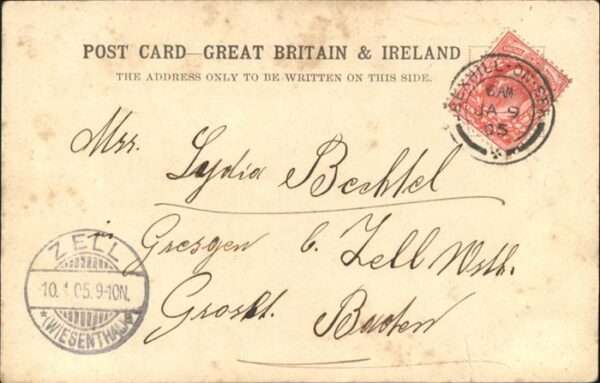 POST CARD—GREAT BRITAIN & IRELAND
THE ADDRESS ONLY TO BE WRITTEN ON THIS SIDE.
BEXHILL-ON-SEA
6 AM
JA 9
05
Mrs. Lydia Bechtel
in Gresgen b. Zell Wsth.
Grosht. Baden
ZELL
10.1.05.9-10N.
*(WIESENTHAL)*